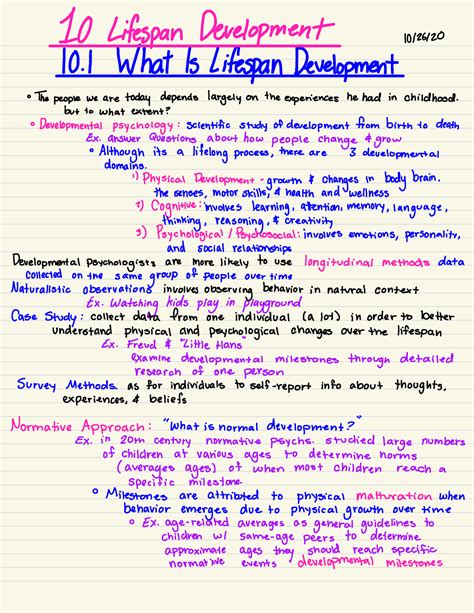 10 Lifespan Development
10/26/20
10.1 What Is Lifespan Development
The people we are today depends largely on the experiences he had in childhood.
but to what extent?
Developmental psychology: scientific study of development from birth to death
Ex. answer Questions about how people change & grow
Although its a lifelong process, there are 3 developmental
domains.
1) Physical Development - growth & changes in body brain.
the senses, motor skills, & health and wellness
2) Cognitive: involves learning, attention, memory, language,
thinking, reasoning, & creativity
3) Psychological / Psychosocial: involves emotions, personality,
and social relationships
Developmental psychologists are more likely to use longitudinal methods data
collected on the same group of people over time
Naturalistic observations involves observing behavior in natural context
Ex. Watching kids play in playground
Case Study: collect data from one individual (a lot) in order to better
understand physical and psychological changes over the lifespan
Ex. Freud & "Little Hans"
examine developmental milestones through detailed
research of one person
Survey Methods. as for individuals to self-report info about thoughts,
experiences, & beliefs
Normative Approach: "What is normal development?"
Ex. in 20th century normative psychs. studied large numbers
of children at various ages to determine norms
(averages ages) of when most children reach a
specific milestone.
Milestones are attributed to physical maturation when
behavior emerges due to physical growth over time
Ex. age-related averages as general guidelines to
children w/ same-age peers to determine
approximate ages they should reach specific
normative events developmental milestones